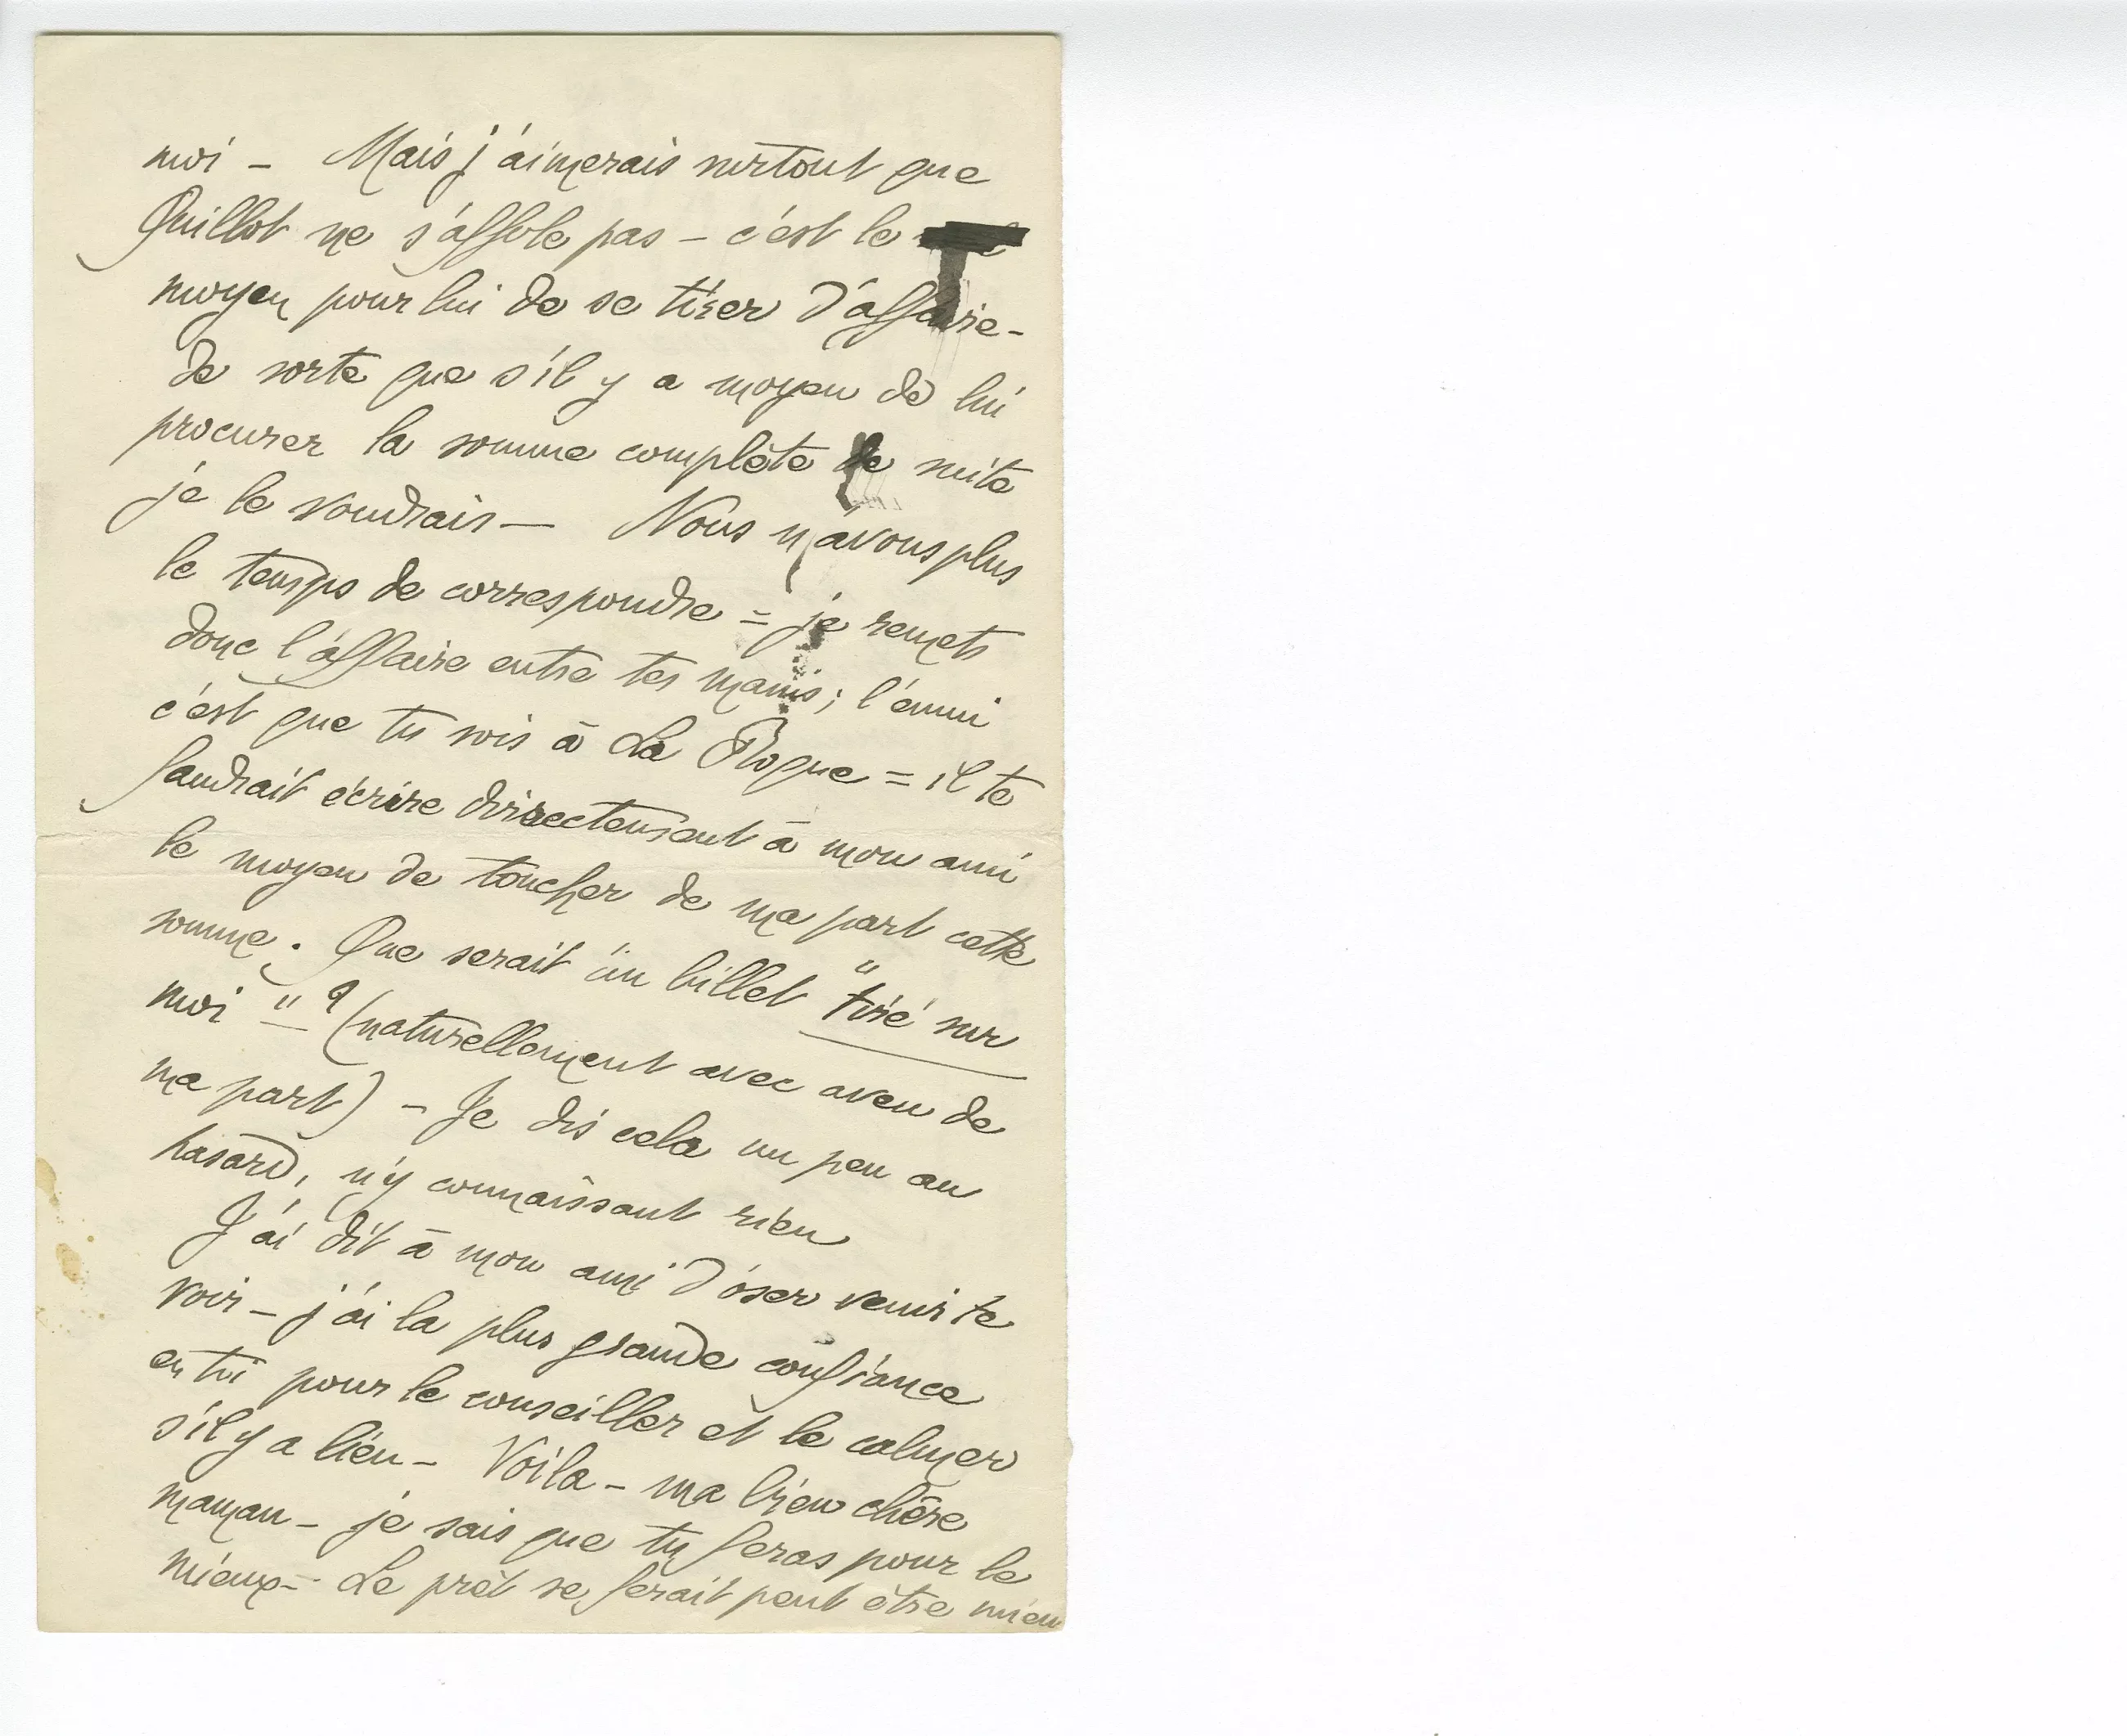 moi – Mais j'aimerais surtout que
Quillot ne s'affole pas – c'est le
moyen pour lui de se tirer d'affaire –
de sorte que s'il y a moyen de lui
procurer la somme complète de suite
je le voudrais – Nous n'avons plus
le temps de correspondre = je remets
donc l'affaire entre tes mains ; l'ennui
c'est que tu sois à La Roque = il te
faudrait écrire directement à mon ami
le moyen de toucher de ma part cette
somme. Que serait un billet "tiré sur
moi" ? (naturellement avec aveu de
ma part) – Je dis cela un peu au
hasard, n'y connaissant rien
J'ai dit à mon ami d'oser venir te
voir – j'ai la plus grande confiance
en toi pour le conseiller et le calmer
s'il y a lieu – Voila – ma bien chère
maman – je sais que tu feras pour le
mieux – Le prêt se ferait peut être mieux